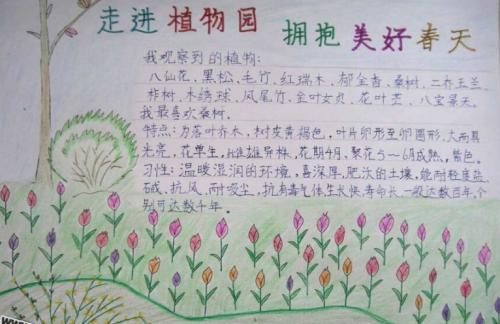 走进植物园 拥抱美好春天
我观察到的植物:
八仙花、黑松、毛竹、红瑞木、郁金香、桑树、二乔玉兰、
柞树、木绣球、凤尾竹、金叶女贞、花叶芒、八宝景天。
我最喜欢桑树。
特点:为落叶乔木,树皮黄褐色,叶片卵形至卵圆形,大而具
光亮,花单生,雌雄异株,花期4月,聚花5-6月成熟,紫色。
习性:温暖湿润的环境,喜深厚、肥沃的土壤,能耐轻度盐
碱、抗风、耐吸尘,抗有毒气体生长快寿命长一般达数百年,个
别可达数千年。